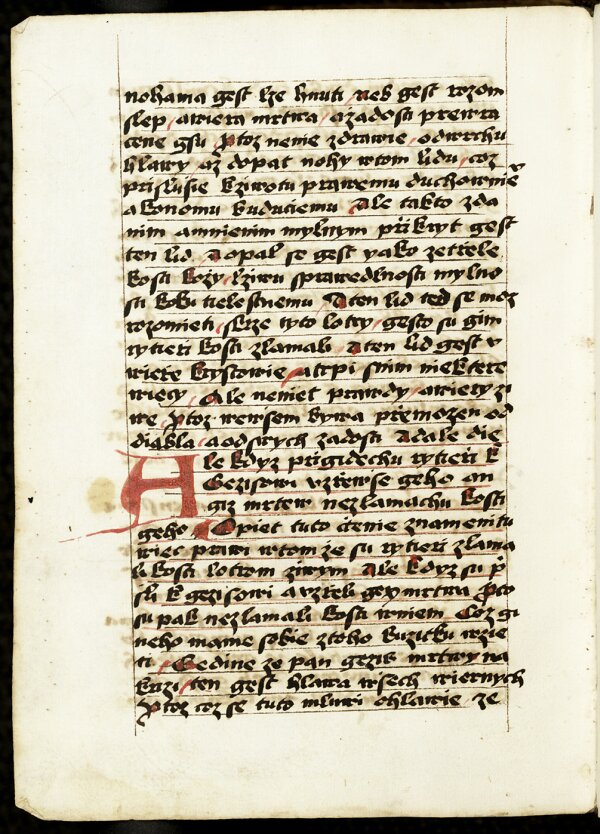 nohama gest lze hnuti neb gest rozom
slep / a wiera mrtwa / a zadosti prewra
cene gsu / Protoz nenie zdrawie / od wrchu
hlawy až do pat nohy w tom lidu / coz
prislusie k ziwotu prawemu duchownie
a konomu buduciemu Ale takto zda
nim a mnienim mylnym přikryt gest
ten lid A opal se gest yako zetrele
kosti kozy / lziwu sprawedlnosti mylno
sti boku tielestnemu A ten lid ted se moz
rozomieti / skrze tyto lotry / gesto su gim
rytieri kosti zlamali A ten lid gest v
wiere krystowie / a trpi s nim niektere
wiecy / Ale neniet prawdy / a wiery zi
we / Protoz we wsem bywa přemozen od
diabla / a od swych zadosti A dale die
Ale kdyz přigidechu rytieři k
Gezisowi vzřewse geho an
giz mrtew nezlamachu kosti
geho / Opiet tuto ctenie znamenitu
wiec prawi w tom že su rytieri zlama
li kosti lotrom ziwym Ale kdyz su p
sli k gezisowi a vzřeli gey mrtwa Proto
su pak nezlamali kosti w niem Coz gi
neho mame sobie z toho k uzitku wzie
ti / Gedine ze pan geziss mrtwy na
krzi / ten gest hlawa wsech wiernych
Protoz coz se tuto mluwi o hlawie / ze